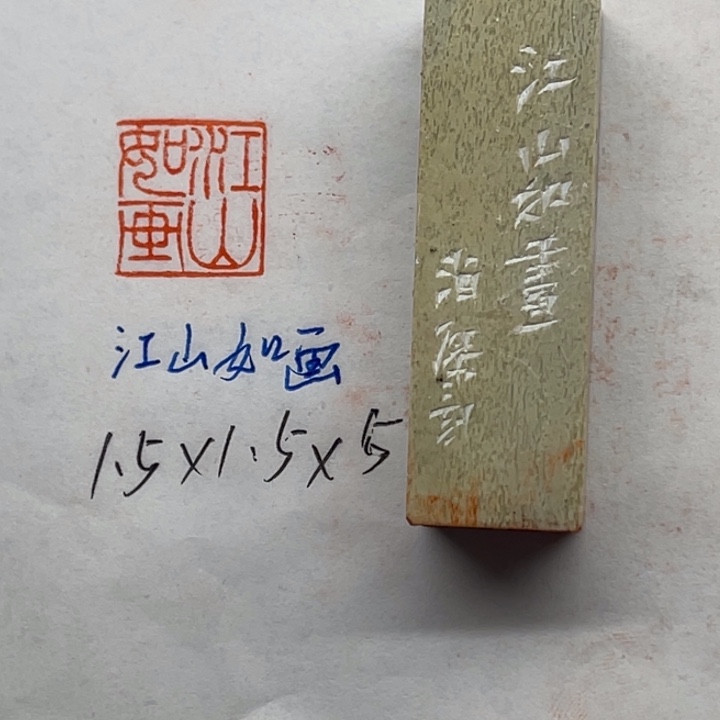 江山如画
江山如画
1.5×1.5×5
江山如畫